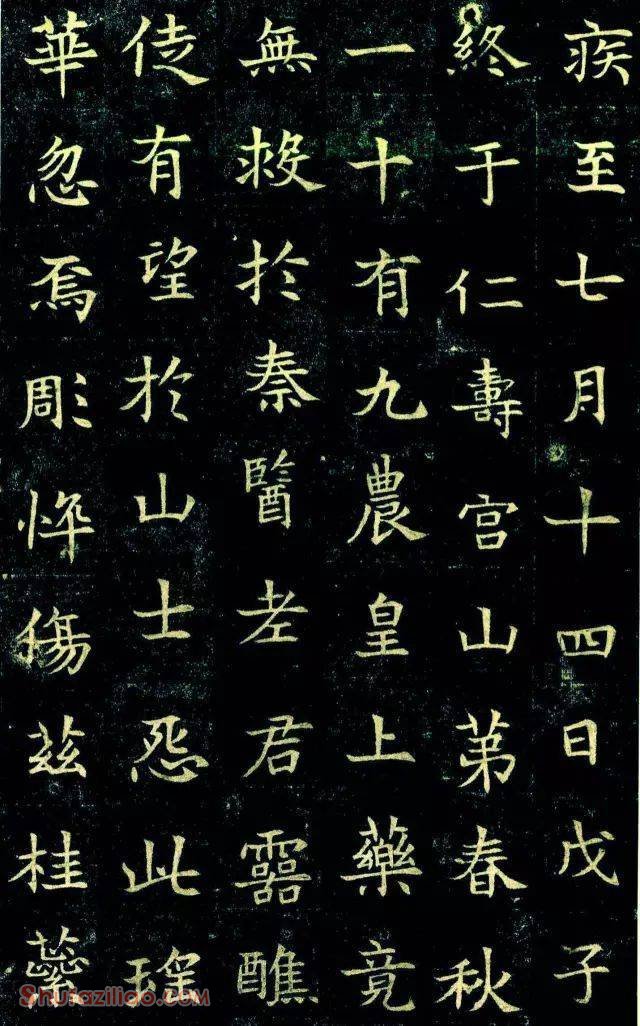 疾至七月十四日戊子
終于仁壽宫山第春秋
一十有九農皇上藥竟
無救於秦醫老君靈醮
徒有望於山士怨此瑶
華忽焉彫悴傷兹桂蘂
Shufaziliao.COM